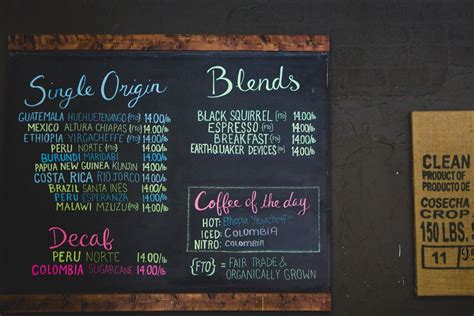 Single Origin
GUATEMALA HUEHUETENANGO {FTO} 14.00/lb
MEXICO ALTURA CHIAPAS {FTO} 14.00/lb
ETHIOPIA YIRGACHEFFE {FTO} 14.00/lb
PERU NORTE {FTO} 14.00/lb
BURUNDI MARIDABI 14.00/lb
PAPUA NEW GUINEA KUNJIN 14.00/lb
COSTA RICA RIO JORCO 14.00/lb
BRAZIL SANTA INES 14.00/lb
PERU ESPERANZA 14.00/lb
MALAWI MZUZU {FTO} 14.00/lb
Decaf
PERU NORTE 14.00/lb
COLOMBIA SUGARCANE 14.00/lb
Blends
BLACK SQUIRREL {FTO} 14.00/lb
ESPRESSO {FTO} 14.00/lb
BREAKFAST {FTO} 14.00/lb
EARTHQUAKER DEVICES {FTO} 14.00/lb
Coffee of the day
HOT: Ethiopia Yirgacheffe
ICED: COLOMBIA
NITRO: COLOMBIA
{FTO} = FAIR TRADE &
ORGANICALLY GROWN
CLEAN
PRODUCT OF
PRODUCTO DE
COSECHA
CROP
150 LBS.
11